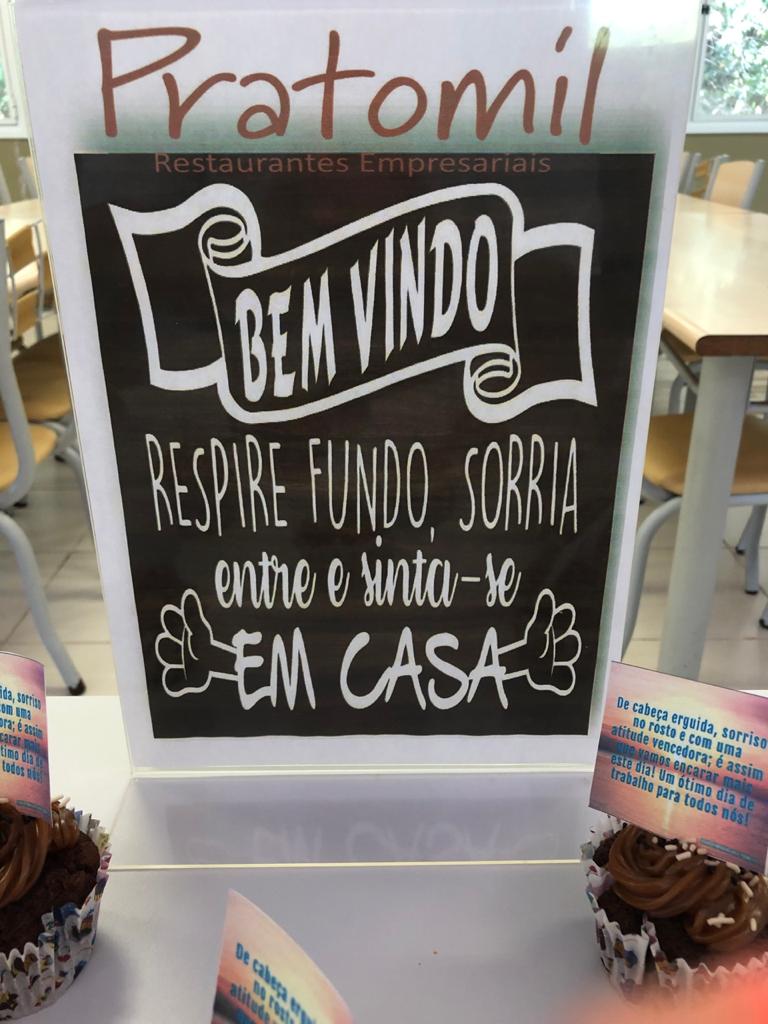 Pratomil
Restaurantes Empresariais
BEM VINDO
RESPIRE FUNDO, SORRIA
entre e sinta-se
EM CASA
ida, sorriso
com uma
ora; é assim
carar mais
timo dia de
todos nós!
De cabeça erguida, sorriso
no rosto e com uma
atitude vencedora; é assim
que vamos encarar mais
este dia! Um ótimo dia de
trabalho para todos nós!
De cabeça ergui
no rosto
atitude